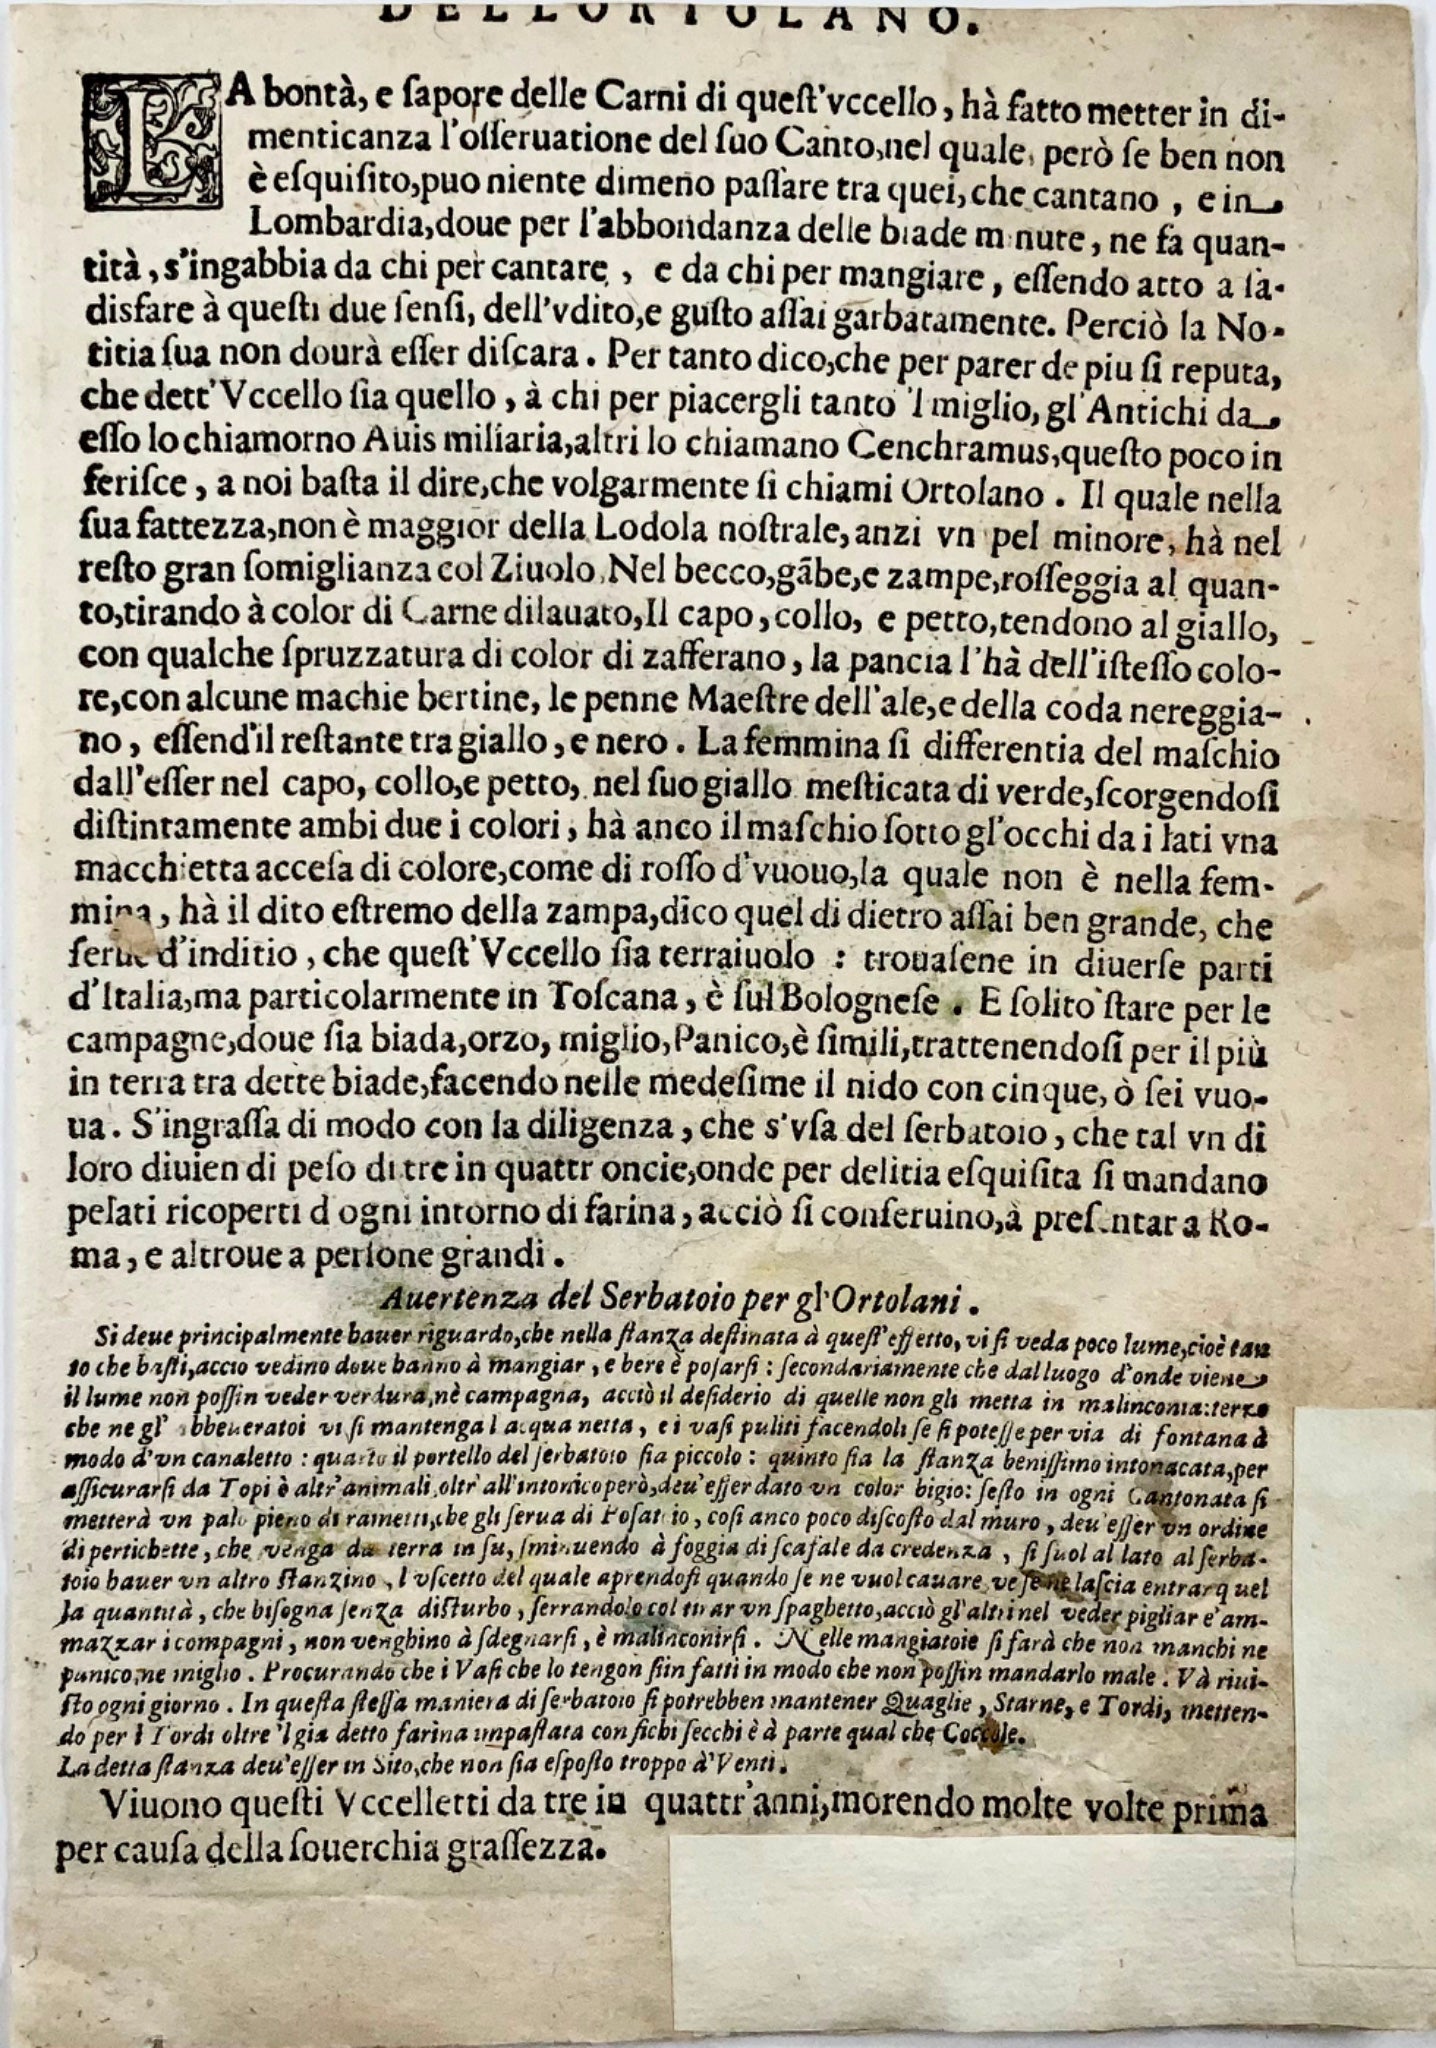 DELL'ORTOLANO.
LA bontà, e ſapore delle Carni di queſt'vccello, hà fatto metter in di-
menticanza l'oſſeruatione del ſuo Canto, nel quale, però ſe ben non
è eſquiſito, puo niente dimeno paſſare tra quei, che cantano, e in
Lombardia, doue per l'abbondanza delle biade minute, ne fa quan-
tità, s'ingabbia da chi per cantare, e da chi per mangiare, eſſendo atto a ſa-
disfare à queſti due ſenſi, dell'vdito, e guſto aſſai garbatamente. Perciò la No-
titia ſua non dourà eſſer diſcara. Per tanto dico, che per parer de piu ſi reputa,
che dett'Vccello ſia quello, à chi per piacergli tanto 'l miglio, gl'Antichi da
eſſo lo chiamorno Auis miliaria, altri lo chiamano Cenchramus, queſto poco in
feriſce, a noi baſta il dire, che volgarmente ſi chiami Ortolano. Il quale nella
ſua fattezza, non è maggior della Lodola noſtrale, anzi vn pel minore, hà nel
reſto gran ſomiglianza col Ziuolo. Nel becco, gãbe, e zampe, roſſeggia al quan-
to, tirando à color di Carne dilauato, Il capo, collo, e petto, tendono al giallo,
con qualche ſpruzzatura di color di zafferano, la pancia l'hà dell'iſteſſo colo-
re, con alcune machie bertine, le penne Maeſtre dell'ale, e della coda nereggia-
no, eſſend'il reſtante tra giallo, e nero. La femmina ſi differentia del maſchio
dall'eſſer nel capo, collo, e petto, nel ſuo giallo meſticata di verde, ſcorgendoſi
diſtintamente ambi due i colori, hà anco il maſchio ſotto gl'occhi da i lati vna
macchietta acceſa di colore, come di roſſo d'vuouo, la quale non è nella fem-
mina, hà il dito eſtremo della zampa, dico quel di dietro aſſai ben grande, che
ſerue d'inditio, che queſt'Vccello ſia terraiuolo : trouaſene in diuerſe parti
d'Italia, ma particolarmente in Toſcana, è ſul Bologneſe. E ſolito ſtare per le
campagne, doue ſia biada, orzo, miglio, Panico, è ſimili, trattenendoſi per il più
in terra tra dette biade, facendo nelle medeſime il nido con cinque, ò ſei vuo-
ua. S'ingraſſa di modo con la diligenza, che s'vſa del ſerbatoio, che tal vn di
loro diuien di peſo di tre in quattr oncie, onde per delitia eſquiſita ſi mandano
pelati ricoperti d ogni intorno di farina, acciò ſi conſeruino, à preſentar a Ro-
ma, e altroue a perſone grandi.
Auertenza del Serbatoio per gl'Ortolani.
Si deue principalmente hauer riguardo, che nella ſtanza deſtinata à queſt'effetto, vi ſi veda poco lume, cioè tan
to che baſti, accio vedino doue hanno à mangiar, e bere è poſarſi : ſecondariamente che dal luogo d'onde viene
il lume non poſſin veder verdura, nè campagna, acciò il deſiderio di quelle non gli metta in malinconia: terzo
che ne gl' abbeueratoi vi ſi mantenga l acqua netta, e i vaſi puliti facendoli ſe ſi poteſſe per via di fontana à
modo d'vn canaletto : quarto il portello del ſerbatoio ſia piccolo : quinto ſia la ſtanza beniſſimo intonacata, per
aſſicurarſi da Topi è altr'animali, oltr'all'intonico però, deu'eſſer dato vn color bigio: ſeſto in ogni Cantonata ſi
metterà vn palo pieno di rametti, che gli ſerua di Poſatoio, coſi anco poco diſcoſto dal muro, deu'eſſer vn ordine
di pertichette, che venga da terra in ſu, ſminuendo à foggia di ſcafale da credenza, ſi ſuol al lato al ſerba-
toio hauer vn altro ſtanzino, l vſcetto del quale aprendoſi quando ſe ne vuol cauare ve ſe ne laſcia entrar quel
la quantità, che biſogna ſenza diſturbo, ſerrandolo col tirar vn ſpaghetto, acciò gl'altri nel veder pigliar e am-
mazzar i compagni, non venghino à ſdegnarſi, è malinconirſi. Nelle mangiatoie ſi farà che non manchi ne
panico, ne miglio. Procurando che i Vaſi che lo tengon ſiin fatti in modo che non poſſin mandarlo male. Và riui-
ſto ogni giorno. In queſta ſteſſa maniera di ſerbatoio ſi potrebben mantener Quaglie, Starne, e Tordi, metten-
do per i Tordi oltre 'l gia detto farina impaſtata con fichi ſecchi è à parte qual che Coccole.
La detta ſtanza deu'eſſer in Sito, che non ſia eſpoſto troppo à'Venti.
Viuono queſti Vccelletti da tre in quattr'anni, morendo molte volte prima
per cauſa della ſouerchia graſſezza.